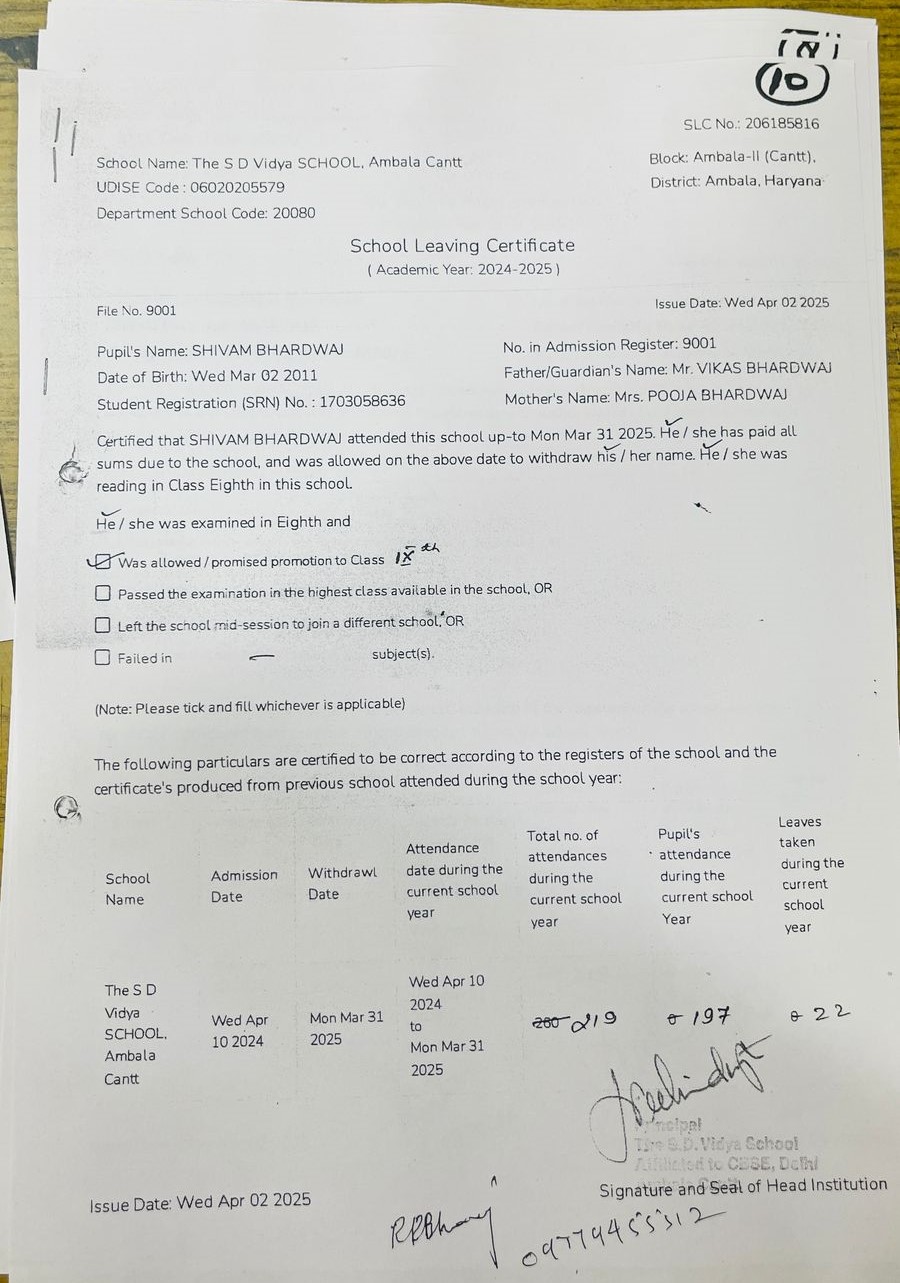 10
SLC No.: 206185816
School Name: The S D Vidya SCHOOL, Ambala Cantt
Block: Ambala-II (Cantt),
UDISE Code : 06020205579
District: Ambala, Haryana
Department School Code: 20080
School Leaving Certificate
( Academic Year: 2024-2025 )
File No. 9001
Issue Date: Wed Apr 02 2025
Pupil's Name: SHIVAM BHARDWAJ
No. in Admission Register: 9001
Date of Birth: Wed Mar 02 2011
Father/Guardian's Name: Mr. VIKAS BHARDWAJ
Student Registration (SRN) No. : 1703058636
Mother's Name: Mrs. POOJA BHARDWAJ
Certified that SHIVAM BHARDWAJ attended this school up-to Mon Mar 31 2025. He / she has paid all
sums due to the school, and was allowed on the above date to withdraw his / her name. He / she was
reading in Class Eighth in this school.
He / she was examined in Eighth and
Was allowed / promised promotion to Class IXth
Passed the examination in the highest class available in the school, OR
Left the school mid-session to join a different school, OR
Failed in — subject(s).
(Note: Please tick and fill whichever is applicable)
The following particulars are certified to be correct according to the registers of the school and the
certificate's produced from previous school attended during the school year:
School
Name
Admission
Date
Withdrawl
Date
Attendance
date during the
current school
year
Total no. of
attendances
during the
current school
year
Pupil's
attendance
during the
current school
Year
Leaves
taken
during the
current
school
year
The S D
Vidya
SCHOOL,
Ambala
Cantt
Wed Apr
10 2024
Mon Mar 31
2025
Wed Apr 10
2024
to
Mon Mar 31
2025
219
197
22
Principal
The S.D. Vidya School
Affiliated to CBSE, Delhi
Signature and Seal of Head Institution
Issue Date: Wed Apr 02 2025
09779455312